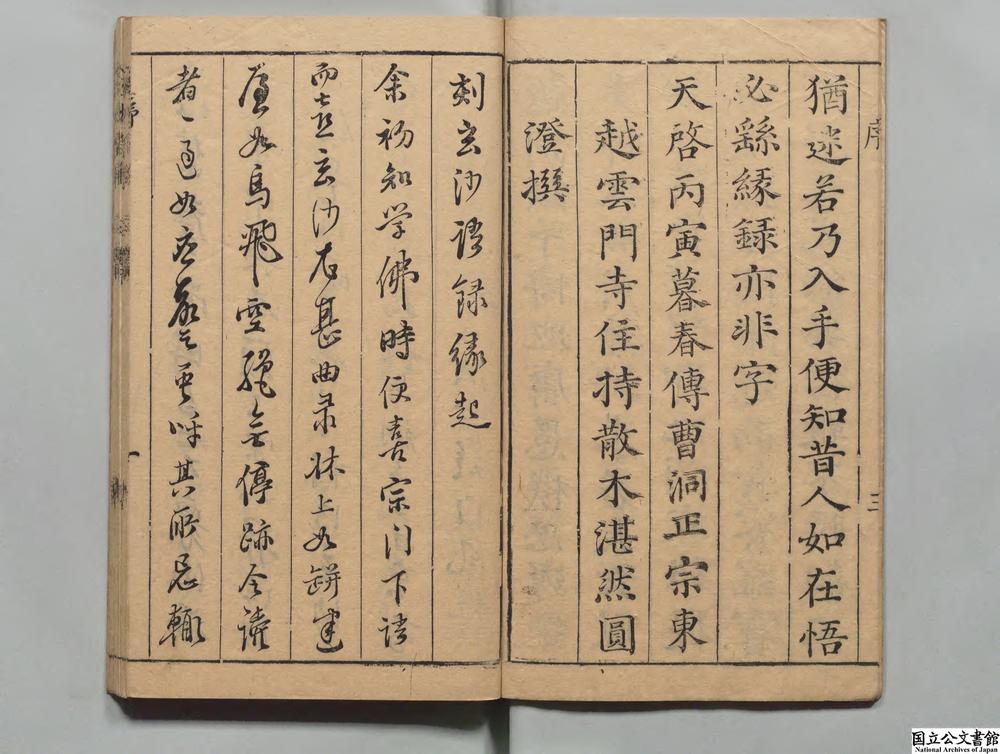 序
三
猶迷若乃入手便知昔人如在悟
必繇緣録亦非字
天啓丙寅暮春傳曹洞正宗東
越雲門寺住持散木湛然圓
澄撰
刻玄沙語録緣起
余初知学佛時便喜宗门下语
而喜玄沙尤甚曲录牀上如缾建
屋如鳥飛空孤无停跡令读
者一过如 其所忌輙
序
一
国立公文書館
National Archives of Japan